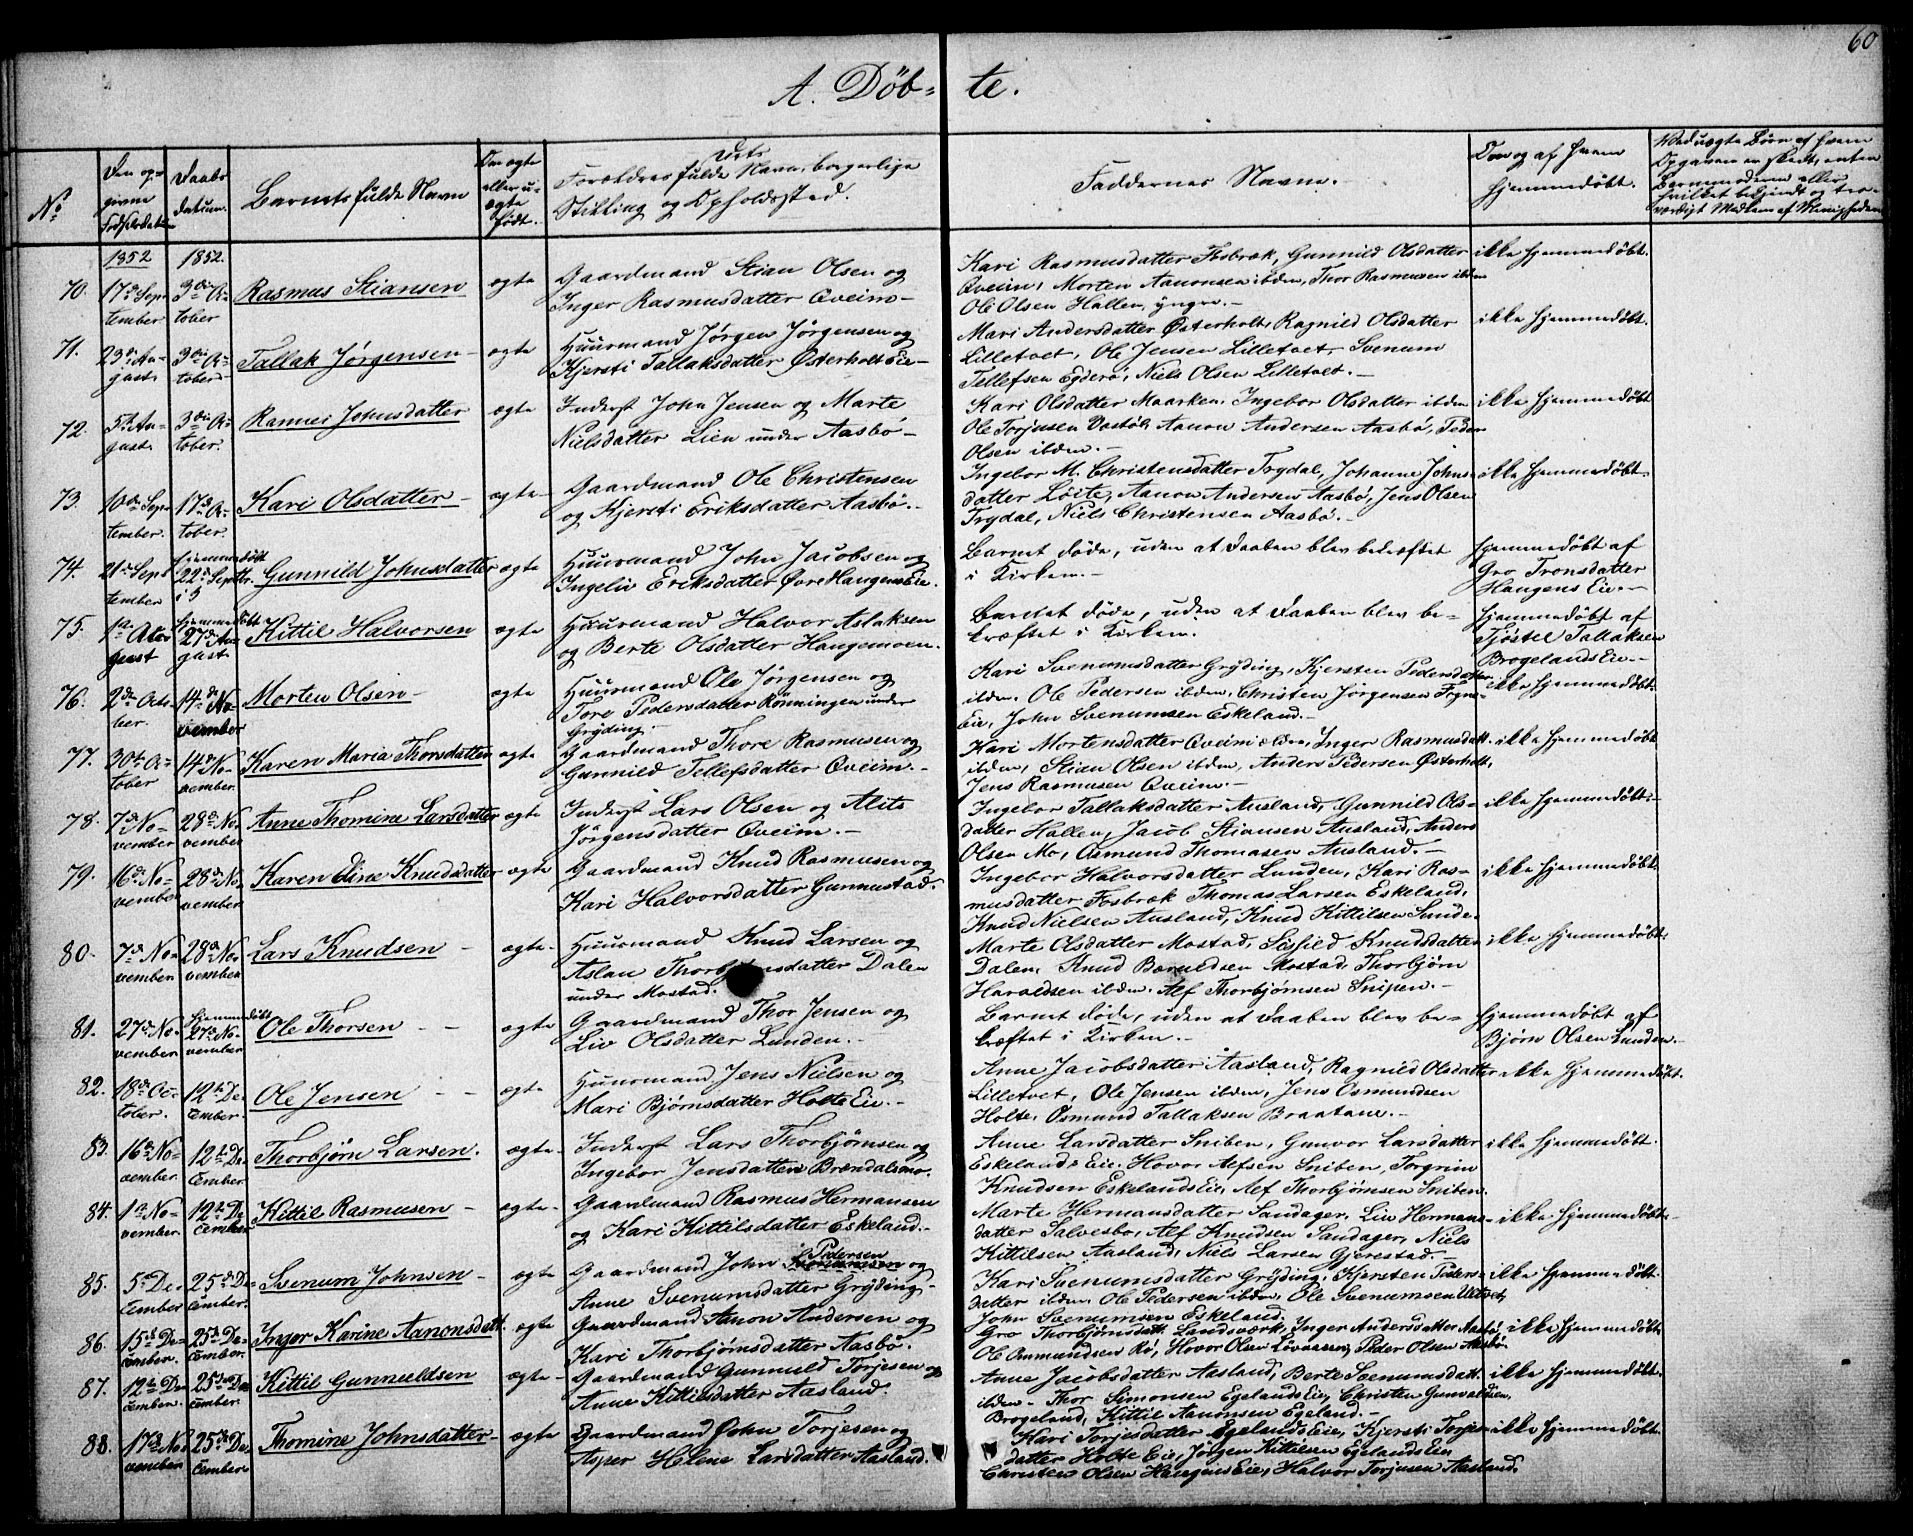 60
A. Döb- te.
No
Den opgivne Fødselsdatum
Daabsdatum.
Barnets fulde Navn
Om ægte eller uægte født.
Forældres fulde Navn, borgerlige Stilling og Opholdssted.
Faddernes Navne.
Om og af hvem hjemmedøbt.
1852 1852.
70. 17de September 3die October Rasmus Stiansen ægte
Gaardmand Stian Olsen og
Inger Rasmusdatter Qveim
Kari Rasmusdatter Fosbræk, Gunnild Olsdatter
Qveim, Morten Aanonsen ibdm, Thor Rasmusen ibdm
Ole Olsen Hallen, yngre.
ikke hjemmedøbt.
71. 23de August 3die October Tallak Jørgensen ægte
Huusmand Jørgen Jørgensen og
Kjersti Tallaksdatter Østerholt Eie
Mari Andersdatter Østerholt, Ragnild Olsdatter
Lilletvet, Ole Jensen Lilletvet, Svenum
Tellefsen Egderø, Niels Olsen Lilletvet.
ikke hjemmedøbt.
72. 5te August 3die October. Rannei Johnsdatter ægte
Inderst John Jensen og Marte
Nielsdatter Lien under Aasbø
Kari Olsdatter Maarken, Ingebor Olsdatter ibdm
Ole Torjusen Vastøl, Aanon Andersen Aasbø, Peder
Olsen ibdm.
ikke hjemmedøbt
73. 10de September. 17de October. Kari Olsdatter ægte
Gaardmand Ole Christensen
og Kjersti Eriksdatter Aasbø.
Ingebor M. Christensdatter Trydal, Johanne Johnsdatter
Løite, Aanon Andersen Aasbø, Jens Olsen
Trydal, Niels Christensen Aasbø.
ikke hjemmedøbt.
74. 21de September hjemmedøbt 22de Septbr. Gunnild Johnsdatter ægte
Huusmand John Jacobsen og
Ingeliv Eriksdatter Øvre Haugens Eie.
Barnet døde, uden at Daaben blev bekræftet
i Kirken.
hjemmedøbt af
Gro Tronsdatter
Haugens Eie.
75. hjemmedøbt 27de August Kittil Halvorsen ægte
Huusmand Halvor Aslaksen
og Berte Olsdatter Haugemoen.
Barnet døde, uden at Daaben blev bekræftet
i Kirken.
hjemmedøbt af
Tjøstel Tallaksen
Brogelands Eie.
76. 2den October. 14de November Morten Olsen ægte
Huusmand Ole Jørgensen og
Tore Pedersdatter Rønningen under
Grøding.
Kari Svenumsdatter Grøding, Kjersten Pedersdatter
ibdm, Ole Pedersen ibdm, Christen Jørgensen
Eie, John Svenumsen Eskeland.
ikke hjemmedøbt.
77. 30te October 14de November. Karen Maria Thorsdatter ægte
Gaardmand Thore Rasmusen og
Gunnild Tellefsdatter Qveim.
Kari Mortensdatter Qveim ældre, Inger Rasmusdatt.
ibdm, Stian Olsen ibdm, Anders Pedersen Østerholt,
Jens Rasmusen Qveim.
ikke hjemmedøbt
78. 7de November 28de November Anne Thomine Larsdatter ægte
Inderst Lars Olsen og Alite
Jørgensdatter Qveim.
Ingebor Tallaksdatter Ausland, Gunnild Olsdatter
Hallen, Jacob Stiansen Ausland, Anders
Olsen Mo, Osmund Thomasen Ausland.
ikke hjemmedøbt.
79. 16de November 28de November Karen Eline Knudsdatter ægte
Gaardmand Knud Rasmusen og
Kari Halvorsdatter Gunnestad.
Ingebor Halvorsdatter Lunden, Kari Rasmusdatter
Fosbræk, Thomas Larsen Eskeland,
Knud Nielsen Ausland, Knud Kittilsen Sunde.
ikke hjemmedøbt.
80. 7de November 28de November Lars Knudsen ægte
Huusmand Knud Larsen og
Aslau Thorbjørnsdatter Dalen
under Mostad.
Marte Olsdatter Mostad, Sigfred Knudsdatter
Dalen, Knud Mostad, Thorbjørn
Haroldsen ibdm, Alf Thorbjørnsen Sniben.
ikke hjemmedøbt.
81. 27de November hjemmedøbt 27de November Ole Thorsen ægte
Gaardmand Thor Jensen og
Liv Olsdatter Lunden.
Barnet døde, uden at Daaben blev bekræftet
i Kirken.
hjemmedøbt af
Bjørn Olsen Lunden.
82. 18de October. 12te December. Ole Jensen ægte
Huusmand Jens Nielsen og
Mari Bjørnsdatter Holte Eie.
Anne Jacobsdatter Aasland, Ragnild Olsdatter
Lilletvet, Ole Jensen ibdm, Jens Osmundsen
Holte, Osmund Tallaksen Braatane.
ikke hjemmedøbt.
83. 16de November. 12te December. Thorbjørn Larsen. ægte
Inderst Lars Thorbjørnsen og
Ingebor Jensdatter Brændalsmo.
Anne Larsdatter Sniben, Gunvor Larsdatter
Eskelands Eie, Hovor Alfsen Sniben, Torgrim
Knudsen Eskelands Eie, Alf Thorbjørnsen Sniben.
ikke hjemmedøbt.
84. 1ste November. 12te December Kittil Rasmusen ægte
Gaardmand Rasmus Hermansen
og Kari Kittilsdatter Eskeland.
Marte Hermansdatter Sandager, Liv Hermansdatter
Salvesbo, Alf Knudsen Sandager, Niels
Kittilsen Aasland, Niels Larsen Gjerestad.
ikke hjemmedøbt.
85. 5te December 25de December. Svenum Johnsen ægte
Gaardmand John Pedersen og
Anne Svenumsdatter Grøding
Kari Svenumsdatter Grøding, Kjersten Pedersdatter
ibdm, Ole Pedersen ibdm, Ole Svenumsen
John Svenumsen Eskeland.
ikke hjemmedøbt.
86. 15de December. 25de December. Inger Karine Aanonsdatt. ægte
Gaardmand Aanon Andersen og
Kari Thorbjørnsdatter Aasbø.
Gro Thorbjørnsdatt. Landsværk, Inger Andersdatter Aasbø
Ole Ommundsen Rø, Hovor Olsen Løvaasen, Peder Olsen Aasbø.
ikke hjemmedøbt.
87. 12te December. 25de December. Kittil Gunnuldsen ægte
Gaardmand Gunnuld Torjesen og
Anne Kittilsdatter Aasland.
Anne Jacobsdatter Aasland, Berte Svenumsdatt.
ibdm, Thor Simonsen Egelands Eie, Christen Gunvaldsen
Brogeland, Kittil Aanonsen Egeland.
ikke hjemmedøbt.
88. 17de November 25de December Thomine Johnsdatter ægte
Gaardmand John Torjesen og
Asper Helene Larsdatter Aasland.
Kari Torjesdatter Egelands Eie, Kjersti Torjesdatter
Holte Eie, Jørgen Kittilsen Egelands Eie
Christen Olsen Haugens Eie, Halvor Torjusen Aasland.
ikke hjemmedøbt.